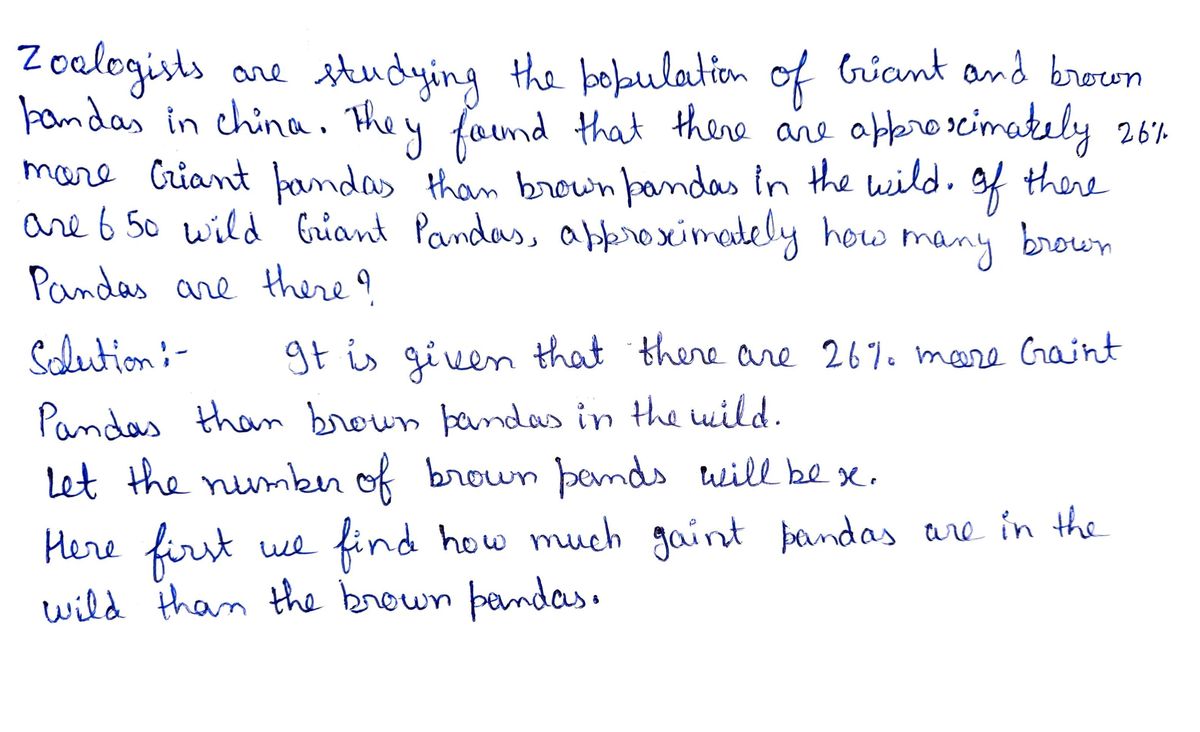 Zoologists are studying the population of Giant and brown
pandas in china. They found that there are approximately 26%
more Giant pandas than brown pandas in the wild. If there
are 650 wild Giant Pandas, approximately how many brown
Pandas are there?
Solution:- It is given that there are 26% more Graint
Pandas than brown pandas in the wild.
Let the number of brown pands will be x.
Here first we find how much gaint pandas are in the
wild than the brown pandas.